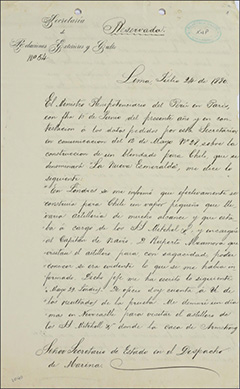 Secretaría
de
Relaciones Exteriores y Culto
Nº 84
Reservado
Lima, Julio 24 de 1880
El Ministro Plenipotenciario del Perú en París,
con fha 11 de Junio del presente año y en con-
testacion á los datos pedidos por esta Secretaría
en comunicacion del 12 de Mayo Nº 28 sobre la
construccion de un blindado para Chile, que se
denominará La Nueva Esmeralda, me dice lo
siguiente.
"En Londres se me informó que efectivamente se
construia para Chile un vapor pequeño que lle-
varia artilleria de mucho alcance y que esta-
ba á cargo de los SS Mitchel y Cª encargué
al Capitan de Navio D. Ruperto
que
visitara el astillero para con sagacidad, poder
conocer si era evidente lo que se me habia in-
formado. Dicho Jefe me dá cuenta lo siguiente:
"Mayo 29. Londres. De oficio doy cuenta á V.
de los resultados de la
Me demoré un dia
mas en Newcastle para visitar el astillero de
los SS Mitchell y Cª donde la casa de Armstrong
Señor Secretario de Estado en el Despacho
de Marina.